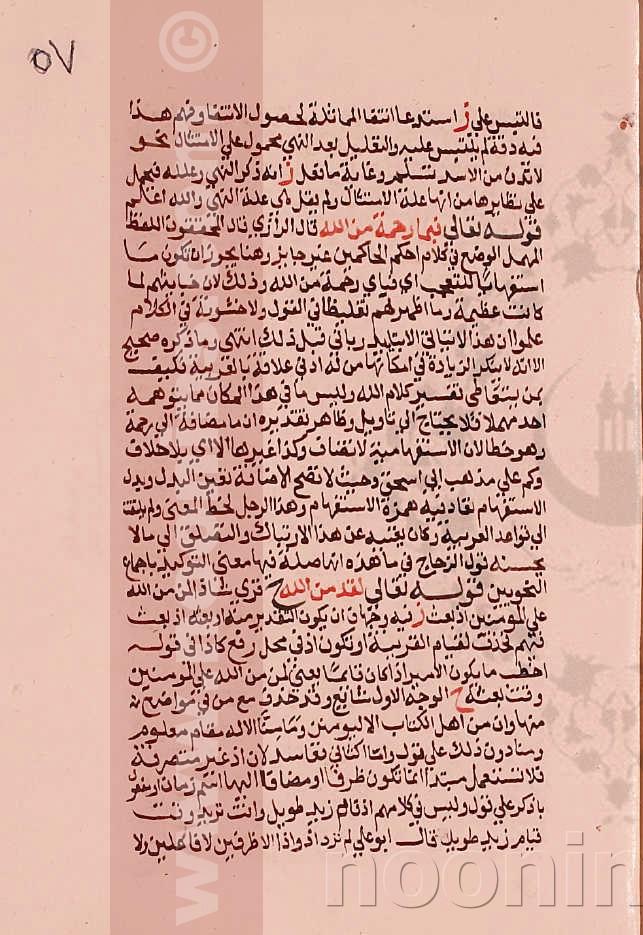 ٥٧
فالتبس على ز استدعا انتفا المماثلة لحصول الانتفا وفهم هذا
فيه دقة لم يلتبس عليه والتعليل بعد النهي محمول على الامتثال نحو
لا تدن من الاسد تسلم وغاية ما نقل ز انه ذكر النهي وعلله فيحمل
على نظايرها من انها علة الامتثال ولم يقل هي علة النهي والله اعلم
قوله تعالى فبما رحمة من الله قال الرازي قال المحققون اللفظ
المهمل الوضع في كلام احكم الحاكمين غير جايز وهنا يجوز ان تكون ما
استفهاما للتعجب اي فباي رحمة من الله وذلك لان جنايتهم لما
كانت عظيمة وما اظهر لهم تغليظا في القول ولا خشونة في الكلام
علموا ان هذا لا يتاتى الا بتاييد رباني قبل ذلك انتهى وما ذكره صحيح
الا انه لا ينكر الزيادة في امكانها من له ادنى علاقة بالعربية فكيف
بمن يتعاطى تفسير كلام الله وليس ما في هذا المكان مما يتوهمه
احد مهملا فلا يحتاج الى تاويل وظاهر تقديره ان ما مضافة الى رحمة
وهو خطا لان الاستفهامية لا تضاف وكذا غيرها الا اي بلا خلاف
وكم على مذهب ابي اسحق وحيث لا تصح الاضافة تعين البدل وبدل
الاستفهام تعاد فيه همزة الاستفهام وهذا الرجل لحظ المعنى ولم يلتفت
الى قواعد العربية وكان يغنيه عن هذا الارتباك والتسلق الى ما لا
يحسنه قول الزجاج في ما هذه انها صلة فيها معنى التوكيد باجماع
النحويين قوله تعالى لقد من الله ح قري شاذا لمن من الله
على المومنين اذ بعث ز فيه وجهان ان يكون التقدير منه او بعثه اذ بعث
فيهم فحذف لقيام القرينة او تكون اذ في محل رفع كاذا في قوله
اخطب ما يكون الامير اذا كان قائما بمعنى لمن من الله على المومنين
وقت بعثه ح الوجه الاول شايع وقد حذف مع من في مواضع
منها وان من اهل الكتاب الا ليومنن وما منا الا له مقام معلوم
ومنا دون ذلك على قول واما الثاني ففاسد لان اذ غير متصرفة
فلا تستعمل مبتدا انما تكون ظرفا او مضافا اليها اسم زمان او مفعولا
باذكر على قول وليس في كلامهم اذ قام زيد طويل وانت تريد وقت
قيام زيد طويل قال ابو علي لم ترد اذ واذا الا ظرفين لا فاعلين ولا
noonin